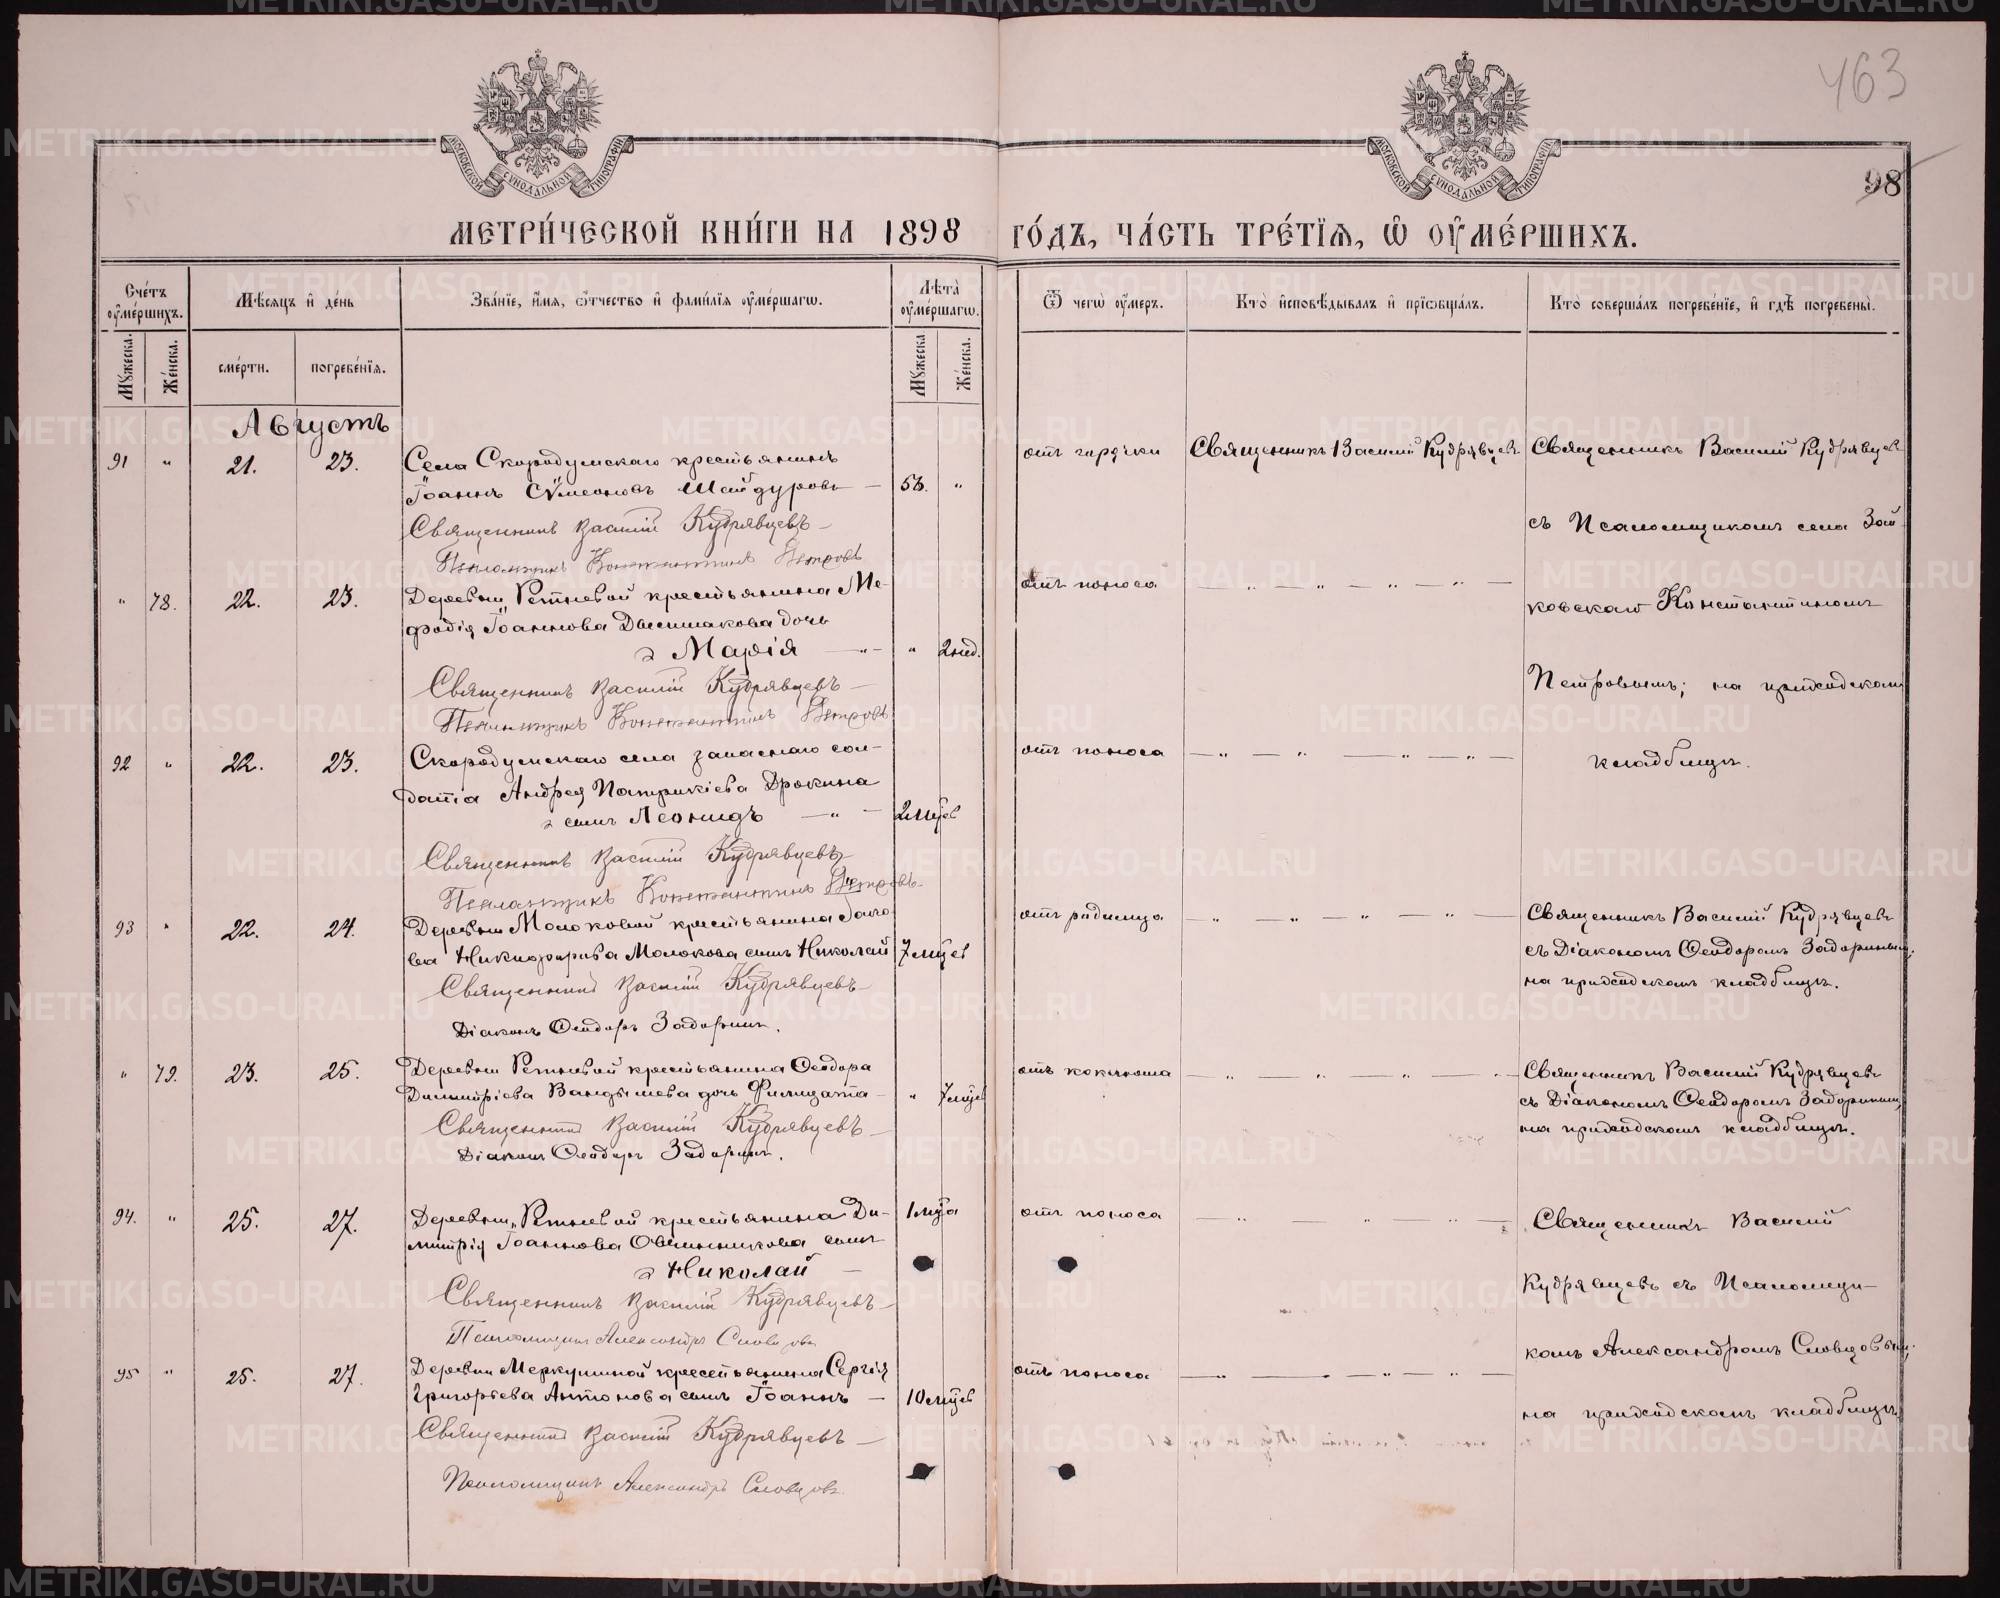 463
98
МОСКОВСКОЙ СѴНОДАЛЬНОЙ ТИПОГРАФІИ
МОСКОВСКОЙ СѴНОДАЛЬНОЙ ТИПОГРАФІИ
МЕТРИ́ЧЕСКОЙ КНИ́ГИ НА 1898 ГО́ДЪ, ЧА́СТЬ ТРЕ́ТЇЯ, Ѡ ОУМЕ́РШИХЪ.
Сче́тъ оуме́ршихъ.
Мꙋжеска.
Же́нска.
Мѣ́сяцъ и де́нь
сме́рти.
погребе́нїя.
Зва́нїе, и́мя, ѻ҆́тчество и фами́лїя оуме́ршагѡ.
Лѣта̀ оуме́ршагѡ.
Мꙋжеска
Же́нска.
Ѿ чегѡ̀ оу́меръ.
Кто̀ исповѣ́дывалъ и прїѡбща́лъ.
Кто̀ соверша́лъ погребе́нїе, и гдѣ̀ погребены̀.
Августъ
91 " 21. 23. Села Скородумскаго крестьянинъ
Іоаннъ Сѵмеоновъ Шайдуровъ — 58. "
Священникъ Василій Кудрявцевъ —
Псаломщикъ Константинъ Петровъ
отъ горячки
Священникъ Василій Кудрявцевъ
Священникъ Василій Кудрявцевъ
съ Псаломщикомъ села Зай-
ковскаго Константиномъ
Петровымъ; на приходскомъ
кладбищѣ.
" 78. 22. 23. Деревни Ретневой крестьянина Ме-
фодія Іоаннова дочь
Марія — " — " 2 нед.
Священникъ Василій Кудрявцевъ —
Псаломщикъ Константинъ Петровъ
отъ поноса — " — " — " — " —
92 " 22. 23. Скородумскаго села запаснаго сол-
дата Андрея Патрикіева Дрокина
сынъ Леонидъ — " — 2 мѣс
Священникъ Василій Кудрявцевъ
Псаломщикъ Константинъ Петровъ
отъ поноса — " — " — " — " —
93 " 22. 24. Деревни Молоковой крестьянина
Никифорова Молокова сынъ Николай 7 мѣс
Священникъ Василій Кудрявцевъ
Діаконъ Ѳеодоръ Задоринъ.
отъ родимца — " — " — " — " —
Священникъ Василій Кудрявцевъ
съ Діакономъ Ѳеодоромъ Задоринымъ;
на приходскомъ кладбищѣ.
" 79. 23. 25. Деревни Ретневой крестьянина Ѳеодора
Димитріева Вандышева дочь Филицата — " 7 мѣс
Священникъ Василій Кудрявцевъ —
Діаконъ Ѳеодоръ Задоринъ.
отъ коклюша — " — " — " — " —
Священникъ Василій Кудрявцевъ
съ Діакономъ Ѳеодоромъ Задоринымъ,
на приходскомъ кладбищѣ.
94. " 25. 27. Деревни Ретневой крестьянина Ди-
митрія Іоаннова Овчинникова сынъ 1 мѣс
Николай —
Священникъ Василій Кудрявцевъ —
Псаломщикъ Александръ Словцовъ
отъ поноса — " — " — " — " —
Священникъ Василій
Кудрявцевъ съ Псаломщи-
комъ Александромъ Словцовымъ;
на приходскомъ кладбищѣ
95 " 25. 27. Деревни Меркушиной крестьянина Сергія
Григорьева Антонова сынъ Іоаннъ — 10 мѣс
Священникъ Василій Кудрявцевъ —
Псаломщикъ Александръ Словцовъ.
отъ поноса — " — " — " — " —
METRIKI.GASO-URAL.RU